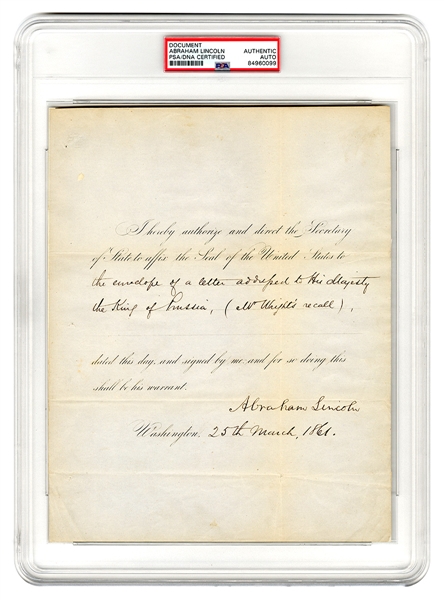 DOCUMENT
ABRAHAM LINCOLN
PSA/DNA CERTIFIED
AUTHENTIC
AUTO
84960099
PSA
I hereby authorize and direct the Secretary
of State to affix the Seal of the United States to
the envelope of a letter addressed to His Majesty
the King of Prussia, (Mr Wright's recall),
dated this day, and signed by me, and for so doing this
shall be his warrant.
Abraham Lincoln
Washington, 25th March, 1861.